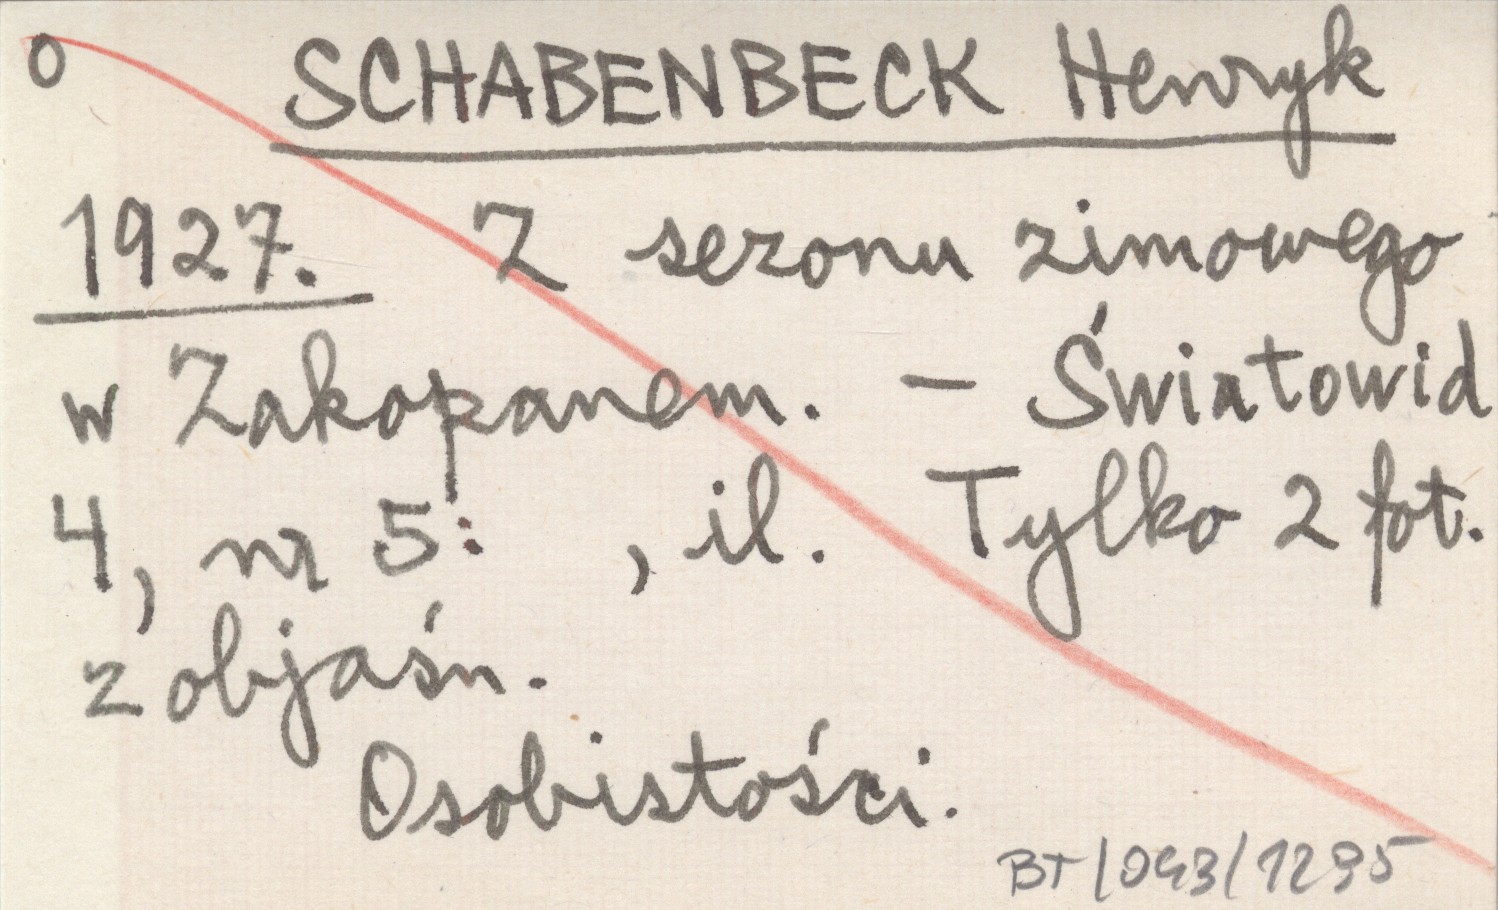 O SCHABENBECK Henryk
1927. Z sezonu zimowego
w Zakopanem. - Światowid
4, nr 5: , il. Tylko 2 fot.
z objaśn.
Osobistości.
BT/043/1295